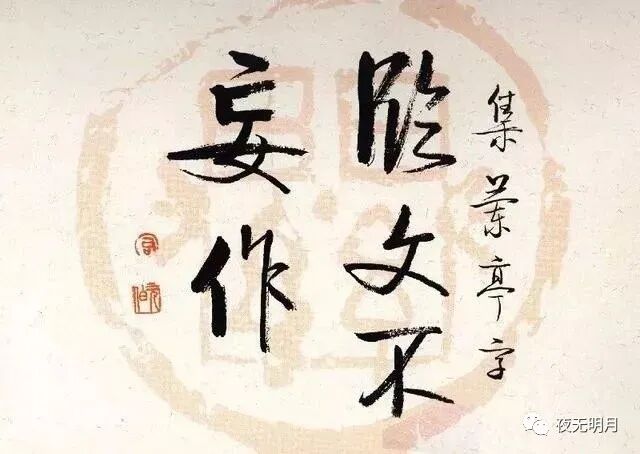 集蘭亭字
臨文不
妄作
夜无明月